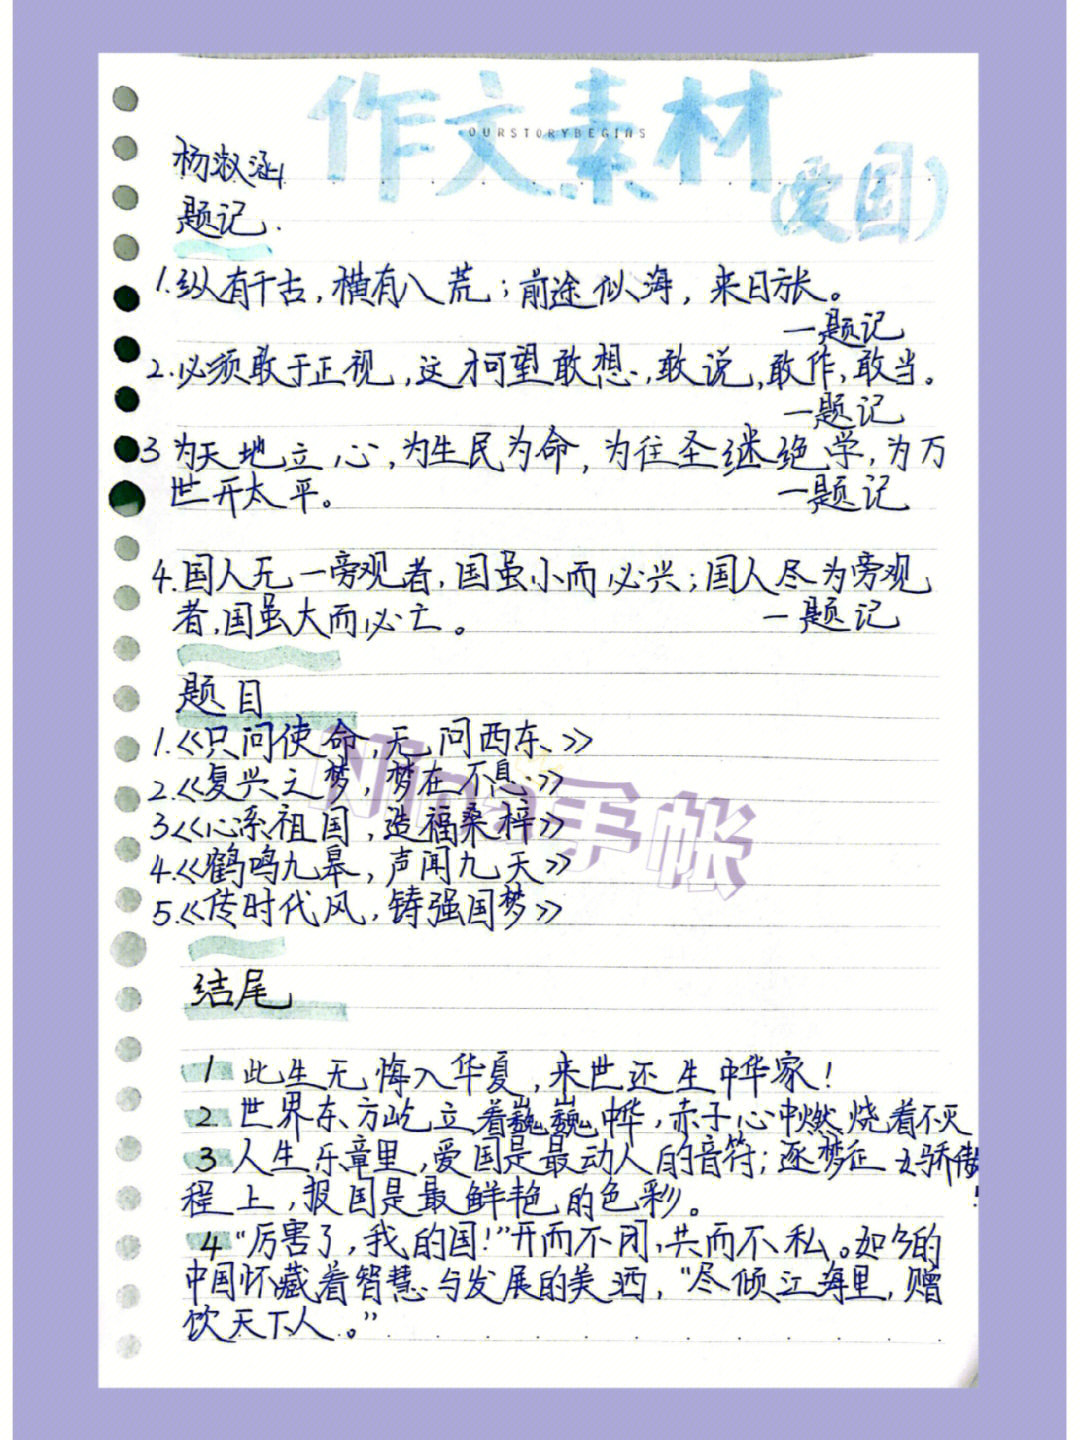 作文素材
OURSTORYBEGINS
(爱国)
杨淑涵
题记.
1.纵有千古，横有八荒；前途似海，来日方长。
—题记
2.必须敢于正视，这才可望敢想，敢说，敢作，敢当。
—题记
3 为天地立心，为生民为命，为往圣继绝学，为万
世开太平。 —题记
4.国人无一旁观者，国虽小而必兴；国人尽为旁观
者，国虽大而必亡。 —题记
题目
1.《只问使命，无问西东》
2.《复兴之梦，梦在不息》
3《心系祖国，造福桑梓》
4.《鹤鸣九皋，声闻九天》
5.《传时代风，铸强国梦》
Nina手帐
结尾
1 此生无悔入华夏，来世还生中华家！
2 世界东方屹立着巍巍中华，赤子心中燃烧着不灭
骄傲！
3 人生乐章里，爱国是最动人的音符；逐梦征
程上，报国是最鲜艳的色彩。
4 “厉害了，我的国！”开而不闭，共而不私。如今的
中国怀藏着智慧与发展的美酒，“尽倾江海里，赠
饮天下人。”